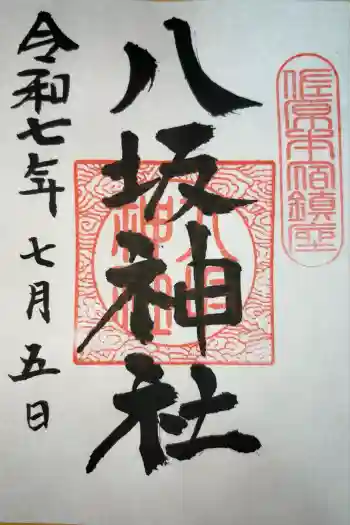 佐原本宿鎮座
八坂神社
令和七年七月五日